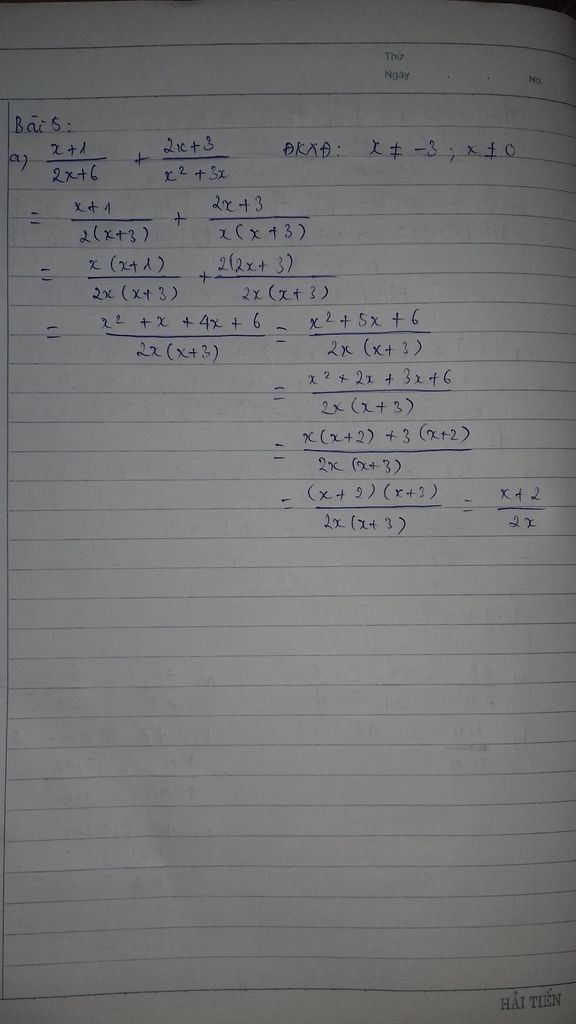 Thứ
Ngày . . No.
Bài 5:
a) (x+1)/(2x+6) + (2x+3)/(x² + 3x) ĐKXĐ: x ≠ -3 ; x ≠ 0
= (x+1)/(2(x+3)) + (2x+3)/(x(x+3))
= (x(x+1))/(2x(x+3)) + (2(2x+3))/(2x(x+3))
= (x² + x + 4x + 6)/(2x(x+3)) = (x² + 5x + 6)/(2x(x+3))
= (x² + 2x + 3x + 6)/(2x(x+3))
= (x(x+2) + 3(x+2))/(2x(x+3))
= ((x+2)(x+3))/(2x(x+3)) = (x+2)/(2x)
HẢI TIẾN